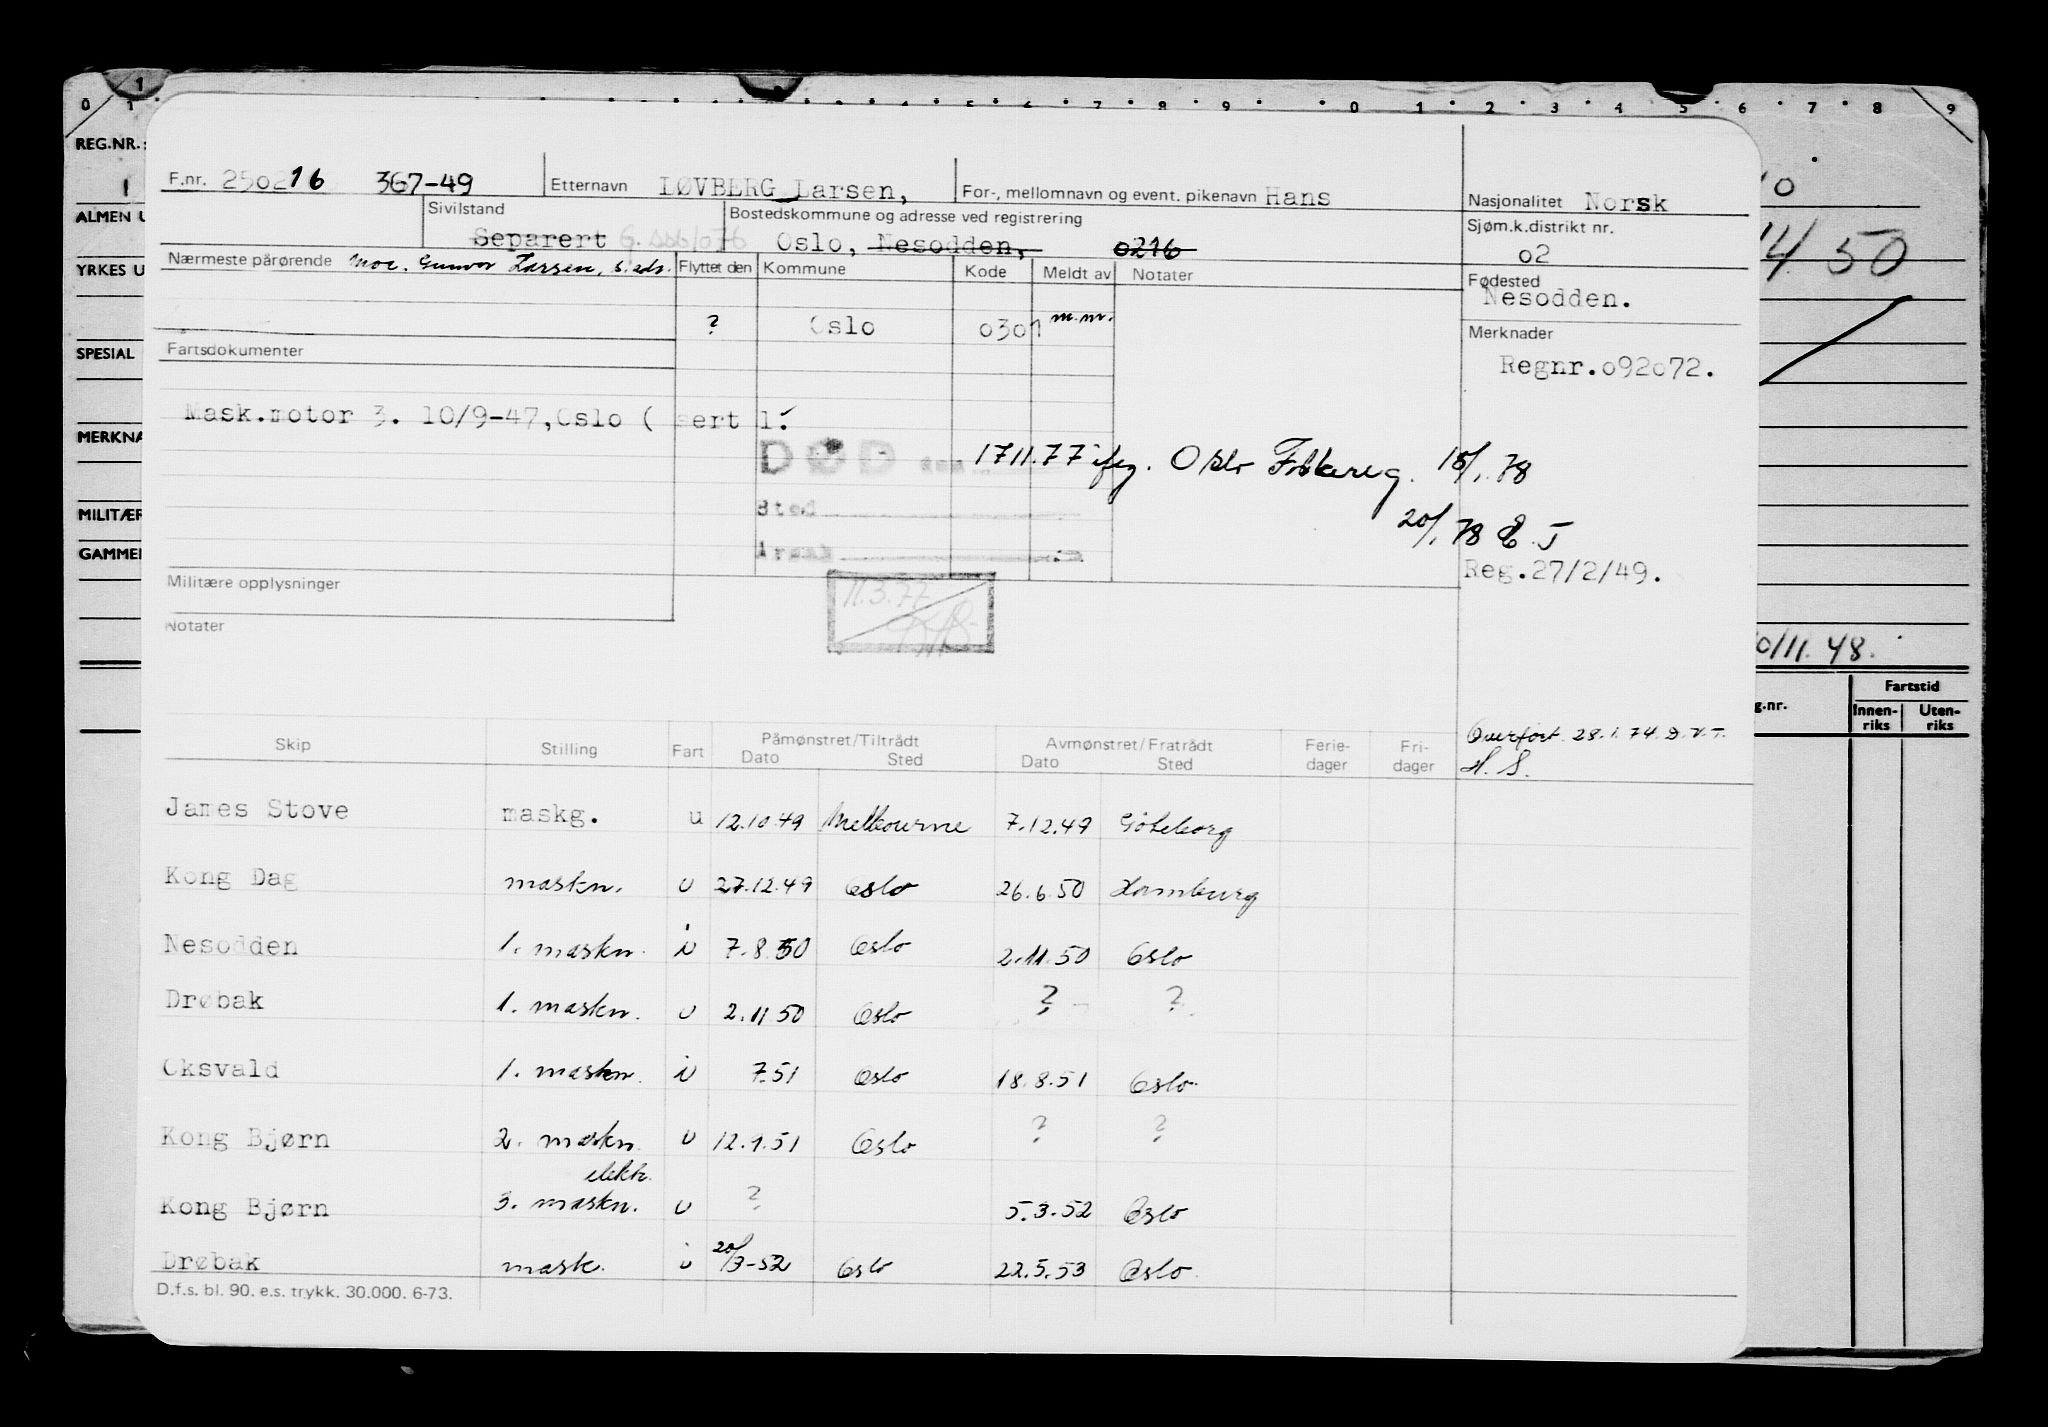 0 1 4 5 6 7 8 9 0 1 2 3 4 5 6 7 8 9
REG.NR.:
ALMEN U
YRKES U
SPESIAL
MERKNA
MILITÆR
GAMMEL
F.nr. 250216 367-49 Etternavn LØVBERG Larsen, For-, mellomnavn og event. pikenavn Hans Nasjonalitet Norsk
Sivilstand Separert G. Bostedskommune og adresse ved registrering Oslo, Nesodden, 0216 Sjøm.k.distrikt nr. 02
Nærmeste pårørende Mor. Gunvor Larsen, s. ads. Flyttet den Kommune Kode Meldt av Notater Fødested Nesodden.
? Oslo 0301 m.m. Merknader
Fartsdokumenter Regnr.092072.
Mask.motor 3. 10/9-47,Oslo ( sert 1.
DØD den 1711.77 ifg. Oslo Folkereg. 18/1.78
Sted
20/1.78 E.J
Årsak
Reg.27/2/49.
Militære opplysninger
11.3.77
Notater
14/50
0/11.48.
g.nr. Fartstid
Innen-riks Uten-riks
Overført 28.1.74. D.V.T.
H. S.
Skip Stilling Fart Påmønstret/Tiltrådt Dato Sted Avmønstret/Fratrådt Dato Sted Ferie-dager Fri-dager
James Stove maskg. u 12.10.49 Melbourne 7.12.49 Göteborg
Kong Dag maskn. u 27.12.49 Oslo 26.6.50 Hamburg
Nesodden 1. maskn. i 7.8.50 Oslo 2.11.50 Oslo
Drøbak 1. maskn. u 2.11 50 Oslo ? ?
Oksvald 1. maskn. i 7.51 Oslo 18.8.51 Oslo
Kong Bjørn 2. maskn. u 12.9.51 Oslo ? ?
elektr.
Kong Bjørn 3. maskn. u ? 5.3.52 Oslo
Drøbak mask. i 20/3-52 Oslo 22.5.53 Oslo
D.f.s. bl. 90. e.s. trykk. 30.000. 6-73.